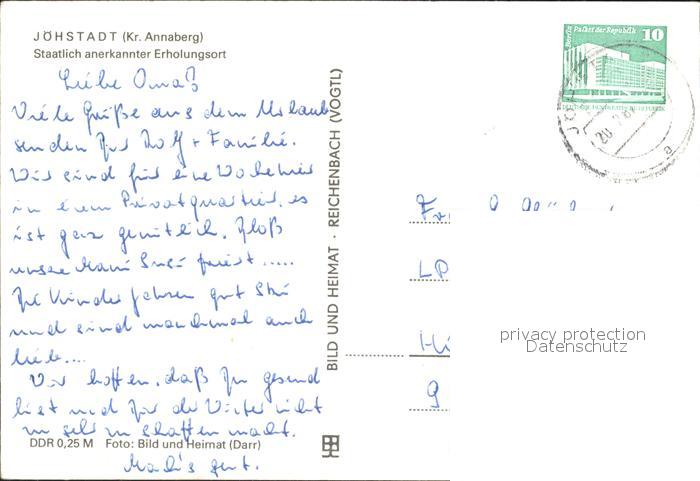 JÖHSTADT (Kr. Annaberg)
Staatlich anerkannter Erholungsort
Liebe Oma!
Viele Grüße aus dem Urlaub
senden Rolf + Familie.
Wir sind für eine Woche hier
in einem Privatquartier, es
ist ganz gemütlich. Bloß
unsere Mausi Susi friert.....
Kinder fahren gut Ski
und sind manchmal auch
lieb....
Wir hoffen, daß Du gesund
bist und Dir der Winter nicht
zu sehr zu schaffen macht.
Mach's gut.
DDR 0,25 M Foto: Bild und Heimat (Darr)
BILD UND HEIMAT · REICHENBACH (VOGTL)
Berlin Palast der Republik 10
DEUTSCHE DEMOKRATISCHE REPUBLIK
privacy protection
Datenschutz